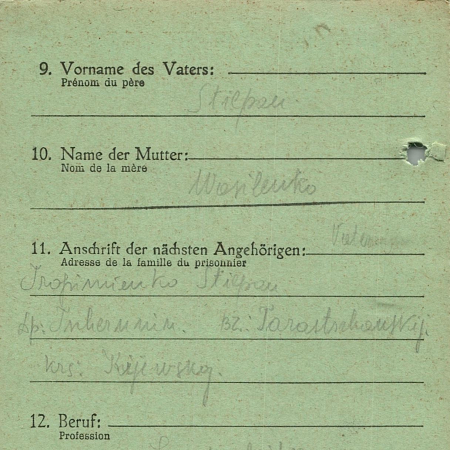 9. Vorname des Vaters:
Prénom du père
Stilpan
10. Name der Mutter:
Nom de la mère
Wasilenko
11. Anschrift der nächsten Angehörigen:
Adresse de la famille du prisonnier
Trofimienko Stilpan
Bz: Tarastschanskij.
Krs: Kijewskoj.
12. Beruf:
Profession